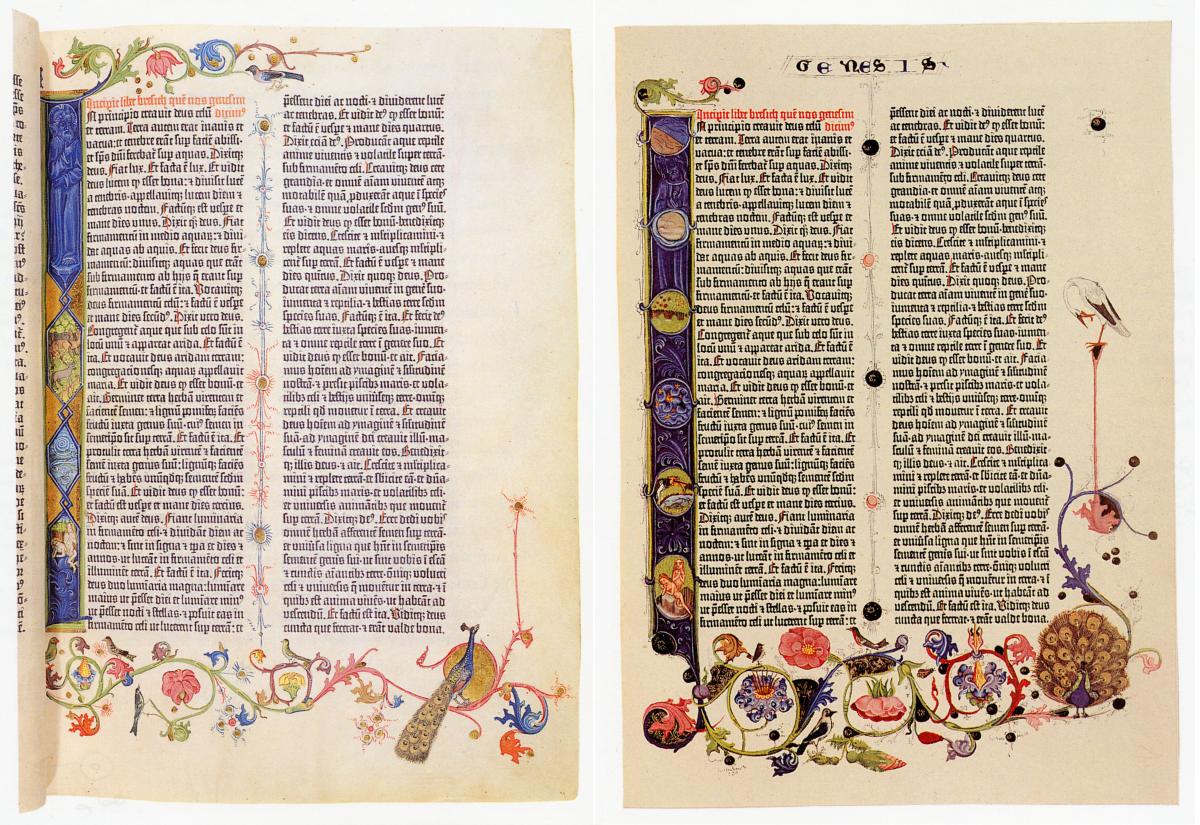 Incipit liber bresith quē nos genesim
N principio creauit deus celū dicim⁹
et terram. Terra autem erat inanis et
uacua: et tenebre erāt sup faciē abissi:
et sp̄s dn̄i ferebat̄ sup aquas. Dixitq₃
deus. Fiat lux. Et facta ē lux. Et vidit
deus lucem ꝙ esset bona: & diuisit lucē
a tenebris-appellauitq₃ lucem diem &
tenebras noctem. Factūq₃ est vespe et
mane dies unus. Dixit q₃ deus. Fiat
firmamentū in medio aquar̄: & diui-
dat aquas ab aquis. Et fecit deus fir-
mamentū: diuisitq₃ aquas que erāt
sub firmamento ab hijs q̄ erant sup
firmamentū: et factū ē ita. Vocauitq₃
deus firmamentū celū: & factū ē vespe
et mane dies secūd⁹. Dixit vero deus.
Congregent̄ aque que sub celo sūt in
locū unū & appareat arida. Et factū ē
ita. Et vocauit deus aridam terram:
congregacionesq₃ aquar̄ appellauit
maria. Et vidit deus ꝙ esset bonū-et
ait. Germinet terra herbā virentem et
facientē semen: & lignū pomiferū faciēs
fructū iuxta genus suū-cui⁹ semen in
semetipo sit sup terrā. Et factū ē ita. Et
protulit terra herbā virentē & facientē
semē iuxta genus suū: lignūq₃ faciēs
fructū & habēs unūqdq₃ sementē scdm
speciē suā. Et vidit deus ꝙ esset bonū:
et factū est vespe et mane dies tercius.
Dixitq₃ autē deus. Fiant luminaria
in firmamēto celi-& diuidāt diem ac
noctem: & sint in signa & tpa et dies &
annos-ut luceāt in firmamēto celi et
illuminēt terrā. Et factū ē ita. Fecitq₃
deus duo lumīaria magna: lumīare
maius ut pesset diei et lumīare min⁹
ut pesset nocti & stellas-& posuit eas in
firmamēto celi ut lucerent sup terrā: et
pessent diei ac nocti-& diuiderent lucē
ac tenebras. Et vidit de⁹ ꝙ esset bonū:
et factū ē vespe & mane dies quartus.
Dixit eciā de⁹. Producant aque reptile
anime viuentis & volatile super terrā-
sub firmamēto celi. Creauitq₃ deus cete
grandia-et omnē aīam viuentē atq₃
motabilē quā pduxerāt aque ī species
suas-& omne volatile scdm gen⁹ suū.
Et vidit deus ꝙ esset bonū-benedixitq₃
eis dicens. Crescite & multiplicamini-&
replete aquas maris-auesq₃ mltipli-
cent̄ sup terrā. Et factū ē vespe & mane
dies quītus. Dixit quoq₃ deus. Pro-
ducat terra aīam viuentē in genē suo-
iumenta & reptilia-& bestias terre scdm
species suas. Factūq₃ ē ita. Et fecit de⁹
bestias terre iuxta species suas-iumēn-
ta & omne reptile terre ī genere suo. Et
vidit deus ꝙ esset bonū-et ait. Facia-
mus hoīem ad ymaginē & similitudinē
nostrā-& presit piscib₃ maris-et vola-
tilib₃ celi & bestijs vniūseq₃ terre-omīq₃
reptili qd mouetur ī terra. Et creauit
deus hoīem ad ymaginē et similitudinē
suā-ad ymaginem dei creauit illū-ma-
sculū & feminā creauit eos. Benedixit-
q₃ illis deus-& ait. Crescite & mltiplica-
mini & replete terrā-et sbicite eā-& dnā-
mini piscib₃ maris-et volatilib₃ celi-
et vniuersis animātib₃ que mouentur
sup terrā. Dixitq₃ de⁹. Ecce dedi vobis
omnē herbā afferentē semen sup terrā-
et vniūsa ligna que hnt in semetipīs
sementē genīs sui-ut sint vobis ī escā
& cūctis aīantib₃ terre-oīniq₃ volucri
celi & vniuersis q̄ mouētur in terra-& ī
quib₃ est anima viuēs-ut habeāt ad
vescendū. Et factū est ita. Viditq₃ deus
cuncta que fecerat-& erāt valde bona.
GENESIS
Incipit liber bresith quē nos genesim
N principio creauit deus celū dicim⁹
et terram. Terra autem erat inanis et
uacua: et tenebre erāt sup faciē abissi:
et sp̄s dn̄i ferebat̄ sup aquas. Dixitq₃
deus. Fiat lux. Et facta ē lux. Et vidit
deus lucem ꝙ esset bona: & diuisit lucē
a tenebris-appellauitq₃ lucem diem &
tenebras noctem. Factūq₃ est vespe et
mane dies unus. Dixit q₃ deus. Fiat
firmamentū in medio aquar̄: & diui-
dat aquas ab aquis. Et fecit deus fir-
mamentū: diuisitq₃ aquas que erāt
sub firmamento ab hijs q̄ erant sup
firmamentū: et factū ē ita. Vocauitq₃
deus firmamentū celū: & factū ē vespe
et mane dies secūd⁹. Dixit vero deus.
Congregent̄ aque que sub celo sūt in
locū unū & appareat arida. Et factū ē
ita. Et vocauit deus aridam terram:
congregacionesq₃ aquar̄ appellauit
maria. Et vidit deus ꝙ esset bonū-et
ait. Germinet terra herbā virentem et
facientē semen: & lignū pomiferū faciēs
fructū iuxta genus suū-cui⁹ semen in
semetipo sit sup terrā. Et factū ē ita. Et
protulit terra herbā virentē & facientē
semē iuxta genus suū: lignūq₃ faciēs
fructū & habēs unūqdq₃ sementē scdm
speciē suā. Et vidit deus ꝙ esset bonū:
et factū est vespe et mane dies tercius.
Dixitq₃ autē deus. Fiant luminaria
in firmamēto celi-& diuidāt diem ac
noctem: & sint in signa & tpa et dies &
annos-ut luceāt in firmamēto celi et
illuminēt terrā. Et factū ē ita. Fecitq₃
deus duo lumīaria magna: lumīare
maius ut pesset diei et lumīare min⁹
ut pesset nocti & stellas-& posuit eas in
firmamēto celi ut lucerent sup terrā: et
pessent diei ac nocti-& diuiderent lucē
ac tenebras. Et vidit de⁹ ꝙ esset bonū:
et factū ē vespe & mane dies quartus.
Dixit eciā de⁹. Producant aque reptile
anime viuentis & volatile super terrā-
sub firmamēto celi. Creauitq₃ deus cete
grandia-et omnē aīam viuentē atq₃
motabilē quā pduxerāt aque ī species
suas-& omne volatile scdm gen⁹ suū.
Et vidit deus ꝙ esset bonū-benedixitq₃
eis dicens. Crescite & multiplicamini-&
replete aquas maris-auesq₃ mltipli-
cent̄ sup terrā. Et factū ē vespe & mane
dies quītus. Dixit quoq₃ deus. Pro-
ducat terra aīam viuentē in genē suo-
iumenta & reptilia-& bestias terre scdm
species suas. Factūq₃ ē ita. Et fecit de⁹
bestias terre iuxta species suas-iumēn-
ta & omne reptile terre ī genere suo. Et
vidit deus ꝙ esset bonū-et ait. Facia-
mus hoīem ad ymaginē & similitudinē
nostrā-& presit piscib₃ maris-et vola-
tilib₃ celi & bestijs vniūseq₃ terre-omīq₃
reptili qd mouetur ī terra. Et creauit
deus hoīem ad ymaginē et similitudinē
suā-ad ymaginem dei creauit illū-ma-
sculū & feminā creauit eos. Benedixit-
q₃ illis deus-& ait. Crescite & mltiplica-
mini & replete terrā-et sbicite eā-& dnā-
mini piscib₃ maris-et volatilib₃ celi-
et vniuersis animātib₃ que mouentur
sup terrā. Dixitq₃ de⁹. Ecce dedi vobis
omnē herbā afferentē semen sup terrā-
et vniūsa ligna que hnt in semetipīs
sementē genīs sui-ut sint vobis ī escā
& cūctis aīantib₃ terre-oīniq₃ volucri
celi & vniuersis q̄ mouētur in terra-& ī
quib₃ est anima viuēs-ut habeāt ad
vescendū. Et factū est ita. Viditq₃ deus
cuncta que fecerat-& erāt valde bona.